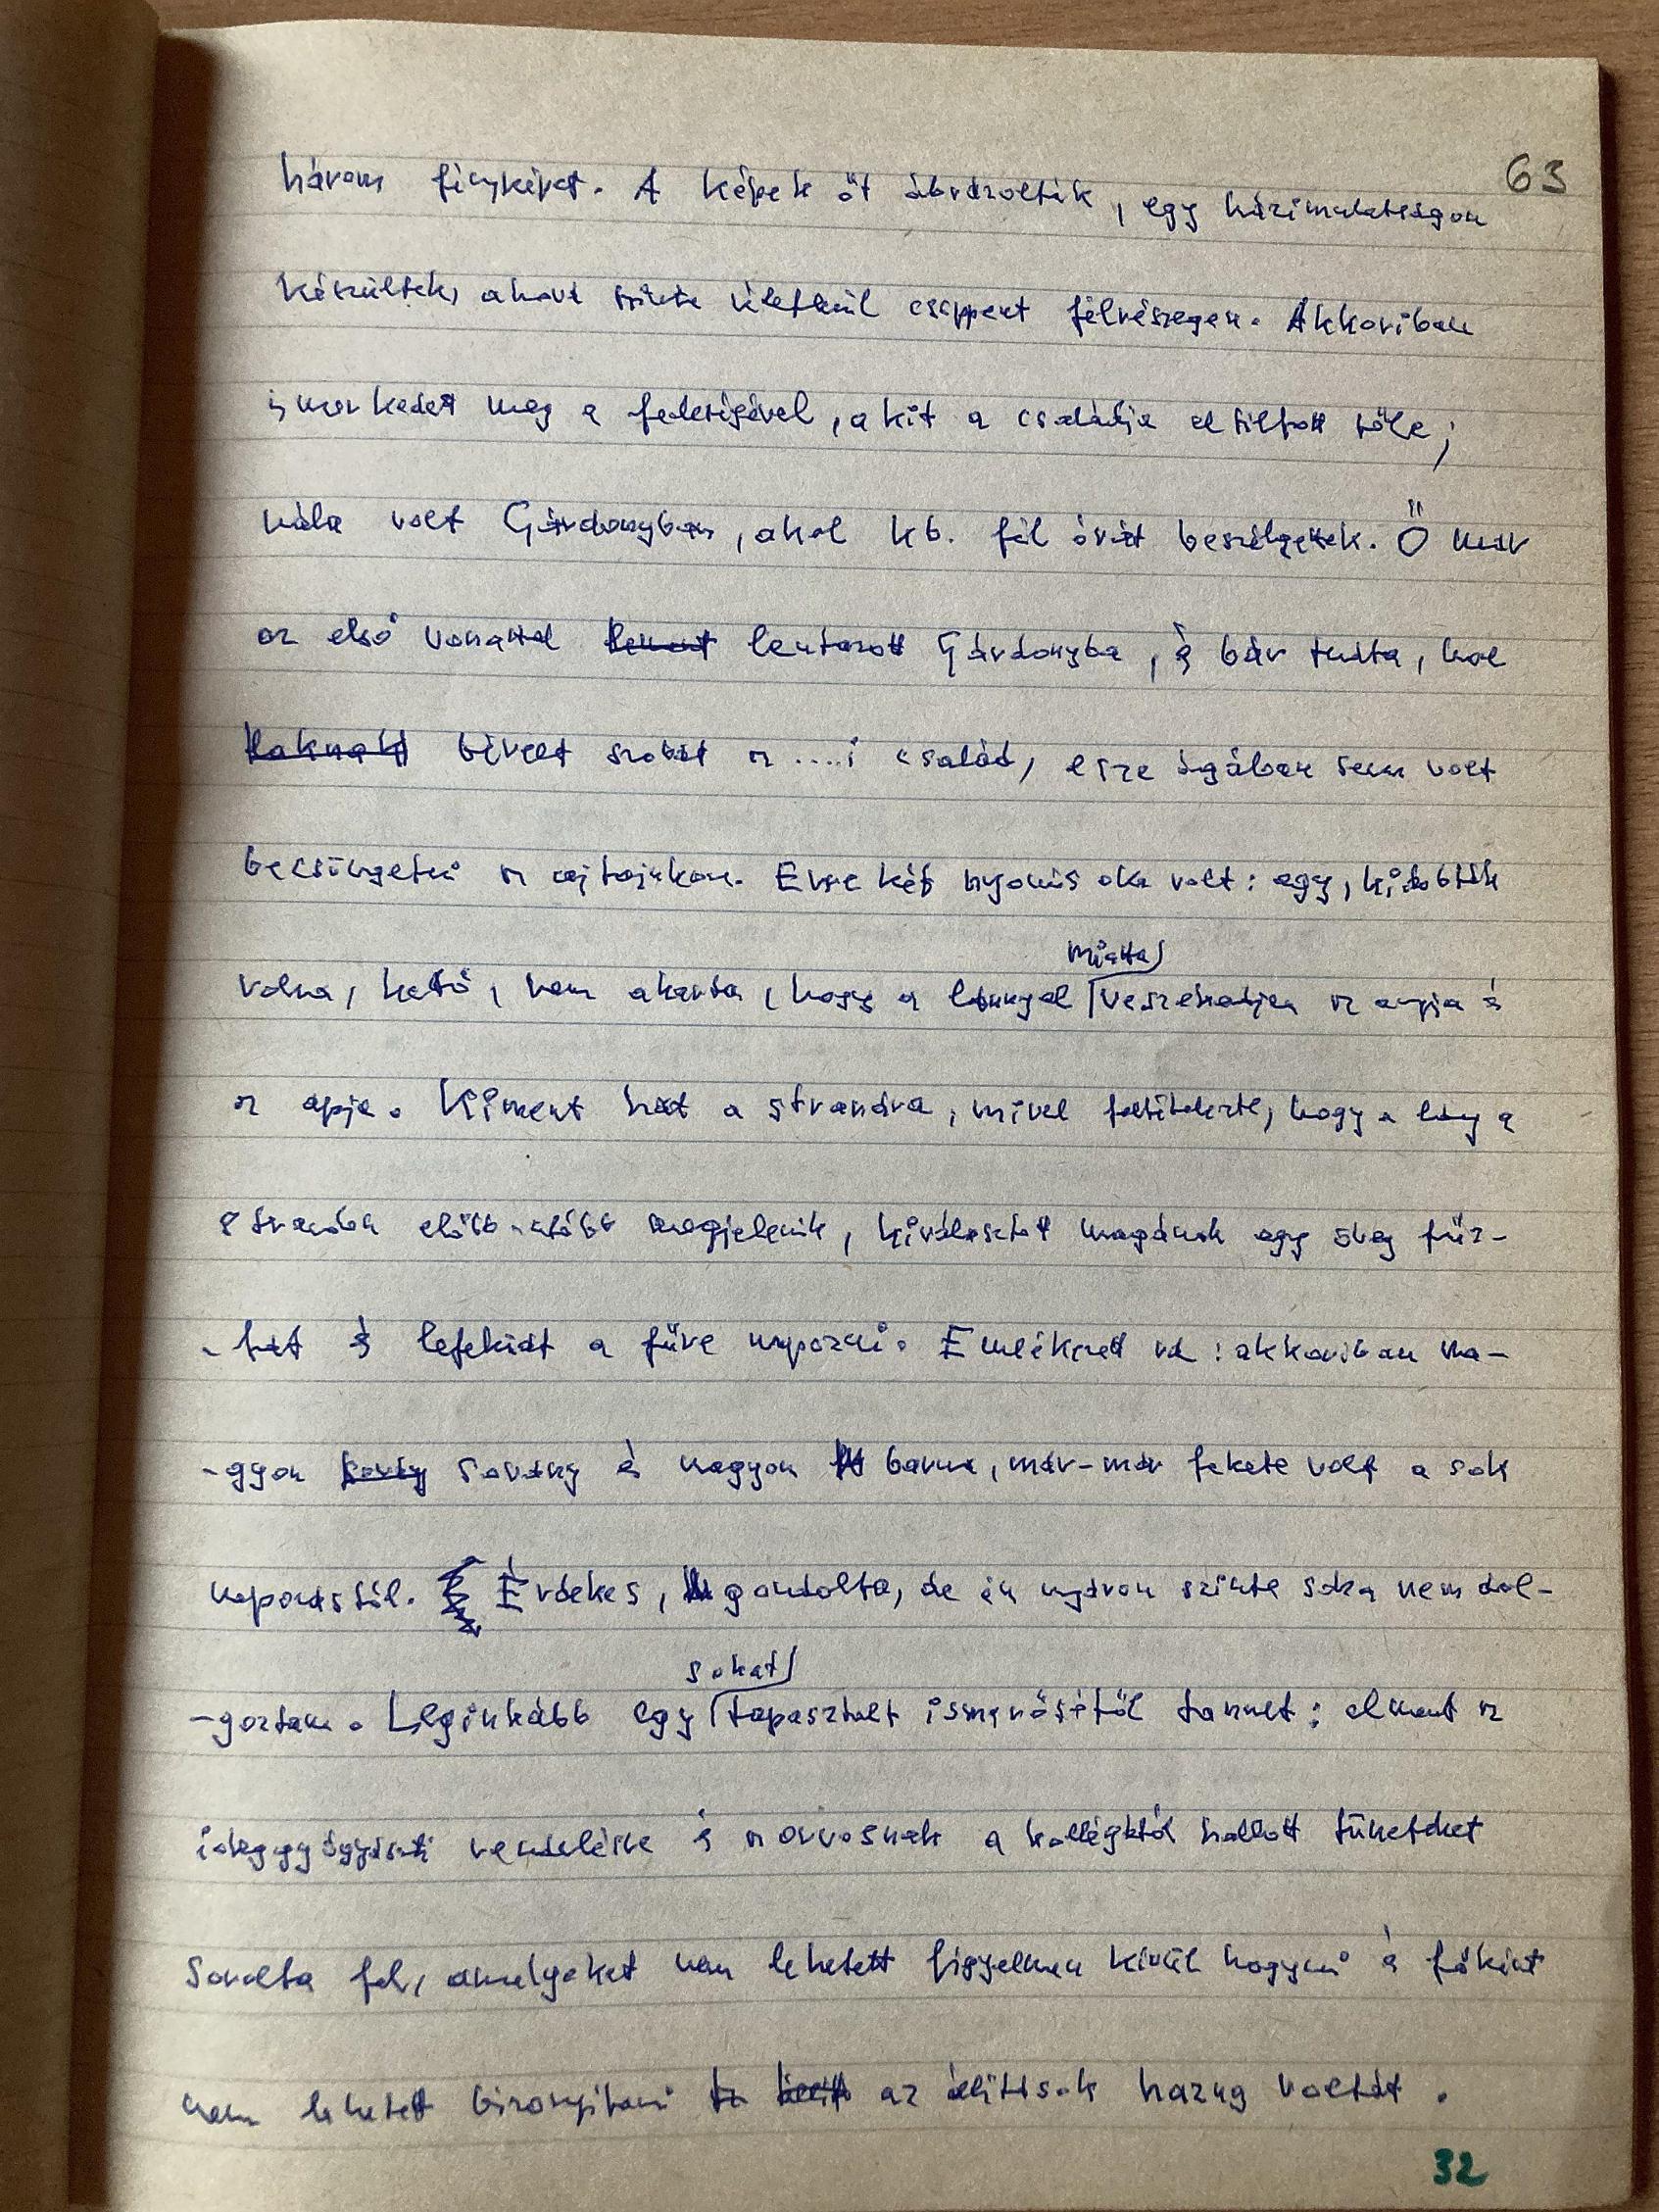 63
három fényképet. A képek őt ábrázolták, egy házimulatságon
készültek, ahová szinte véletlenül csöppent félrészegen. Akkoriban
ismerkedett meg a feleségével, akit a családja eltiltott tőle;
nála volt Gárdonyban, ahol kb. fél órát beszélgettek. Ő már
az első vonattal lement leutazott Gárdonyba, és bár tudta, hol
laknak bérelt szobát az ....i család, esze ágában sem volt
becsöngetni az ajtajukon. Erre két nyomós oka volt: egy, kidobták
miatta
volna, kettő, nem akarta, hogy a lánnyal veszekedjen az anyja és
az apja. Kiment hát a strandra, mivel feltételezte, hogy a lány a
strandon előbb-utóbb megjelenik, kiválasztott magának egy üveg für-
-tőt és lefeküdt a fűre napozni. Emlékezett rá: akkoriban na-
-gyon sovány sovány és nagyon barna, már-már fekete volt a sok
napozástól. Érdekes, gondolta, de én nyáron szinte soha nem dol-
sokat
-goztam. Leginkább egy tapasztalt ismerősétől tanult: elment az
ideggyógyászati rendelésre és az orvosnak a kollégától hallott tüneteket
sorolta fel, amelyeket nem lehetett figyelmen kívül hagyni és főként
nem lehetett bizonyítani az állítások hazug voltát.
32